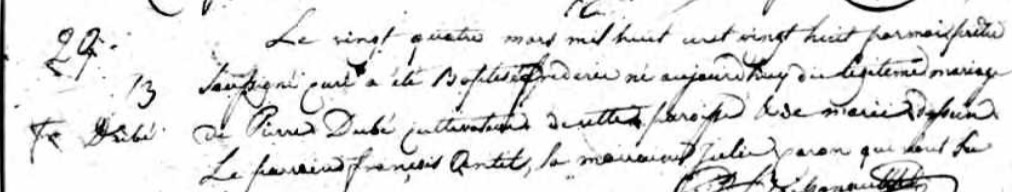 29.
Le vingt quatre mars mil huit cent vingt huit par mois prêtre
13 Soussigné curé a été Baptisé frederic né aujourdhuy du légitime mariage
Fc Dubé de Pierre Dubé cultivateur de cette paroisse & de marie
Le parrain françois Antil, la marraine Julie Caron qui